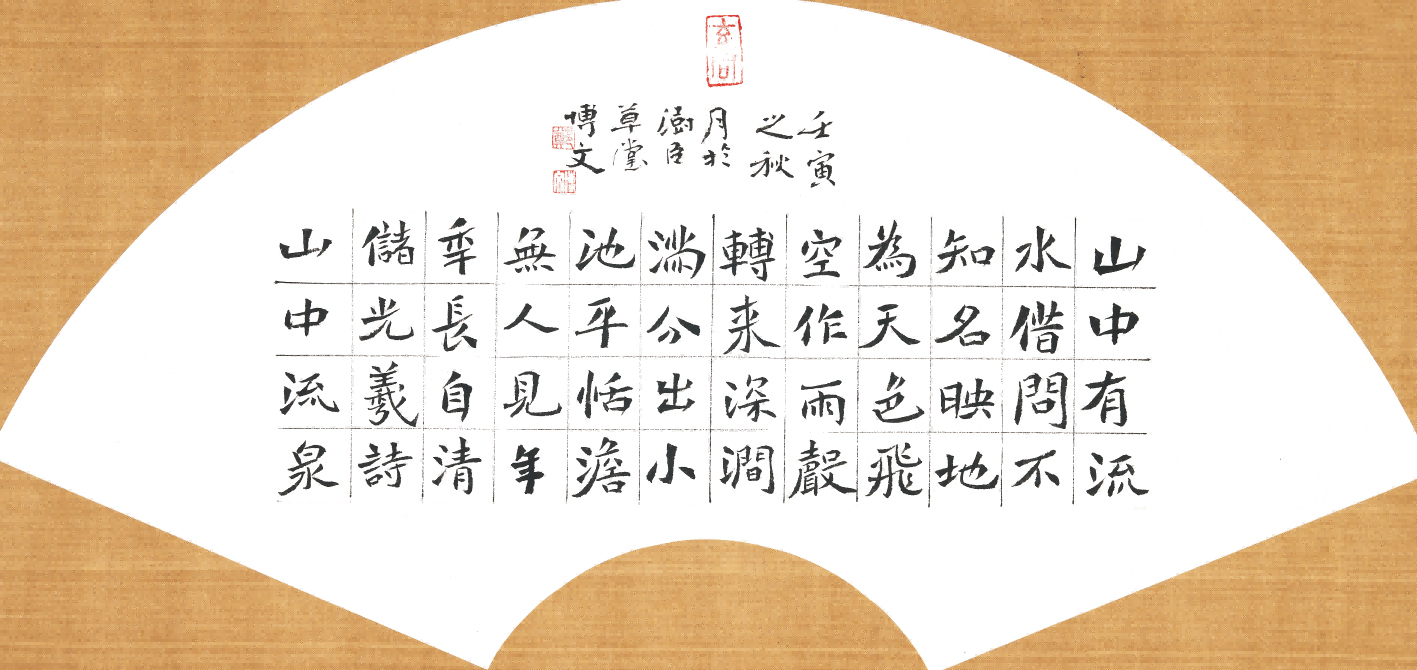 玄同
山中有流
水借問不
知名映地
為天色飛
空作雨聲
轉来深澗
滿分出小
池平恬澹
無人見年
秊長自清
儲光羲詩
山中流泉
壬寅
之秋
月於
澍臣
草堂
博文